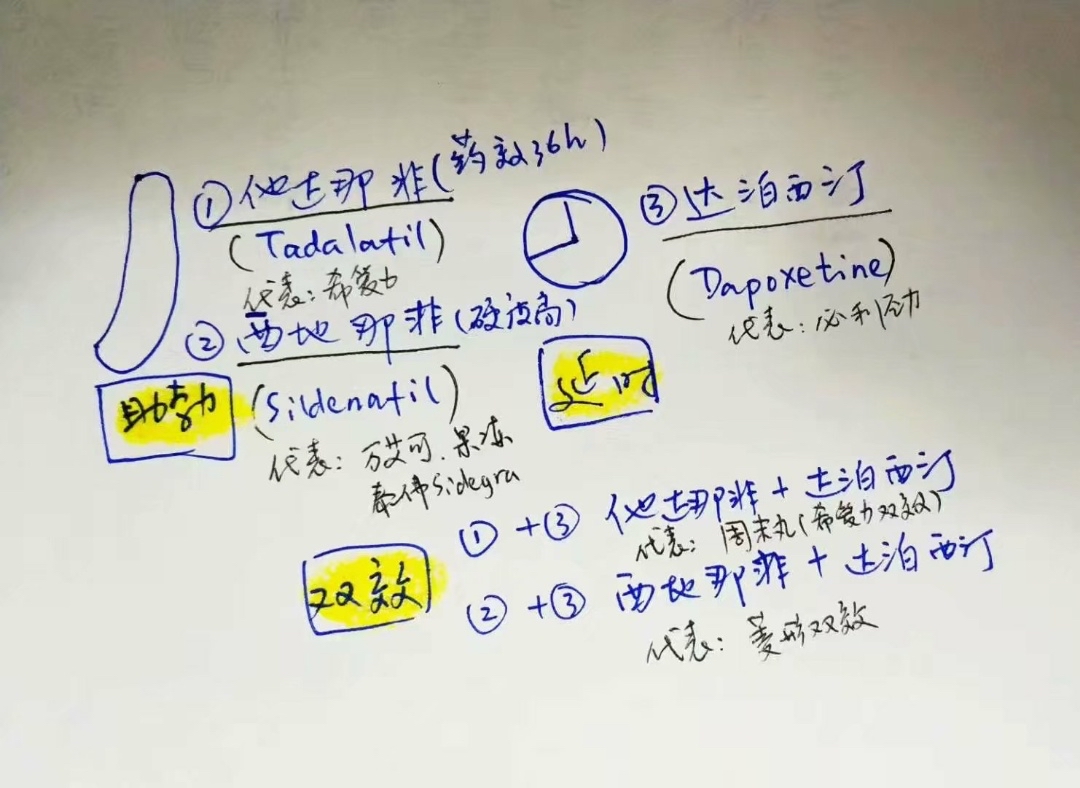 ① 他达那非(药效36h)
(Tadalafil)
代表:希爱力
② 西地那非(硬度高)
(Sildenafil)
代表:万艾可.果冻
泰佛Sidegra
助勃
③ 达泊西汀
(Dapoxetine)
代表:必利劲
延时
双效
①+③ 他达那非+达泊西汀
代表:周末丸(希爱力双效)
②+③ 西地那非+达泊西汀
代表:菱形双效